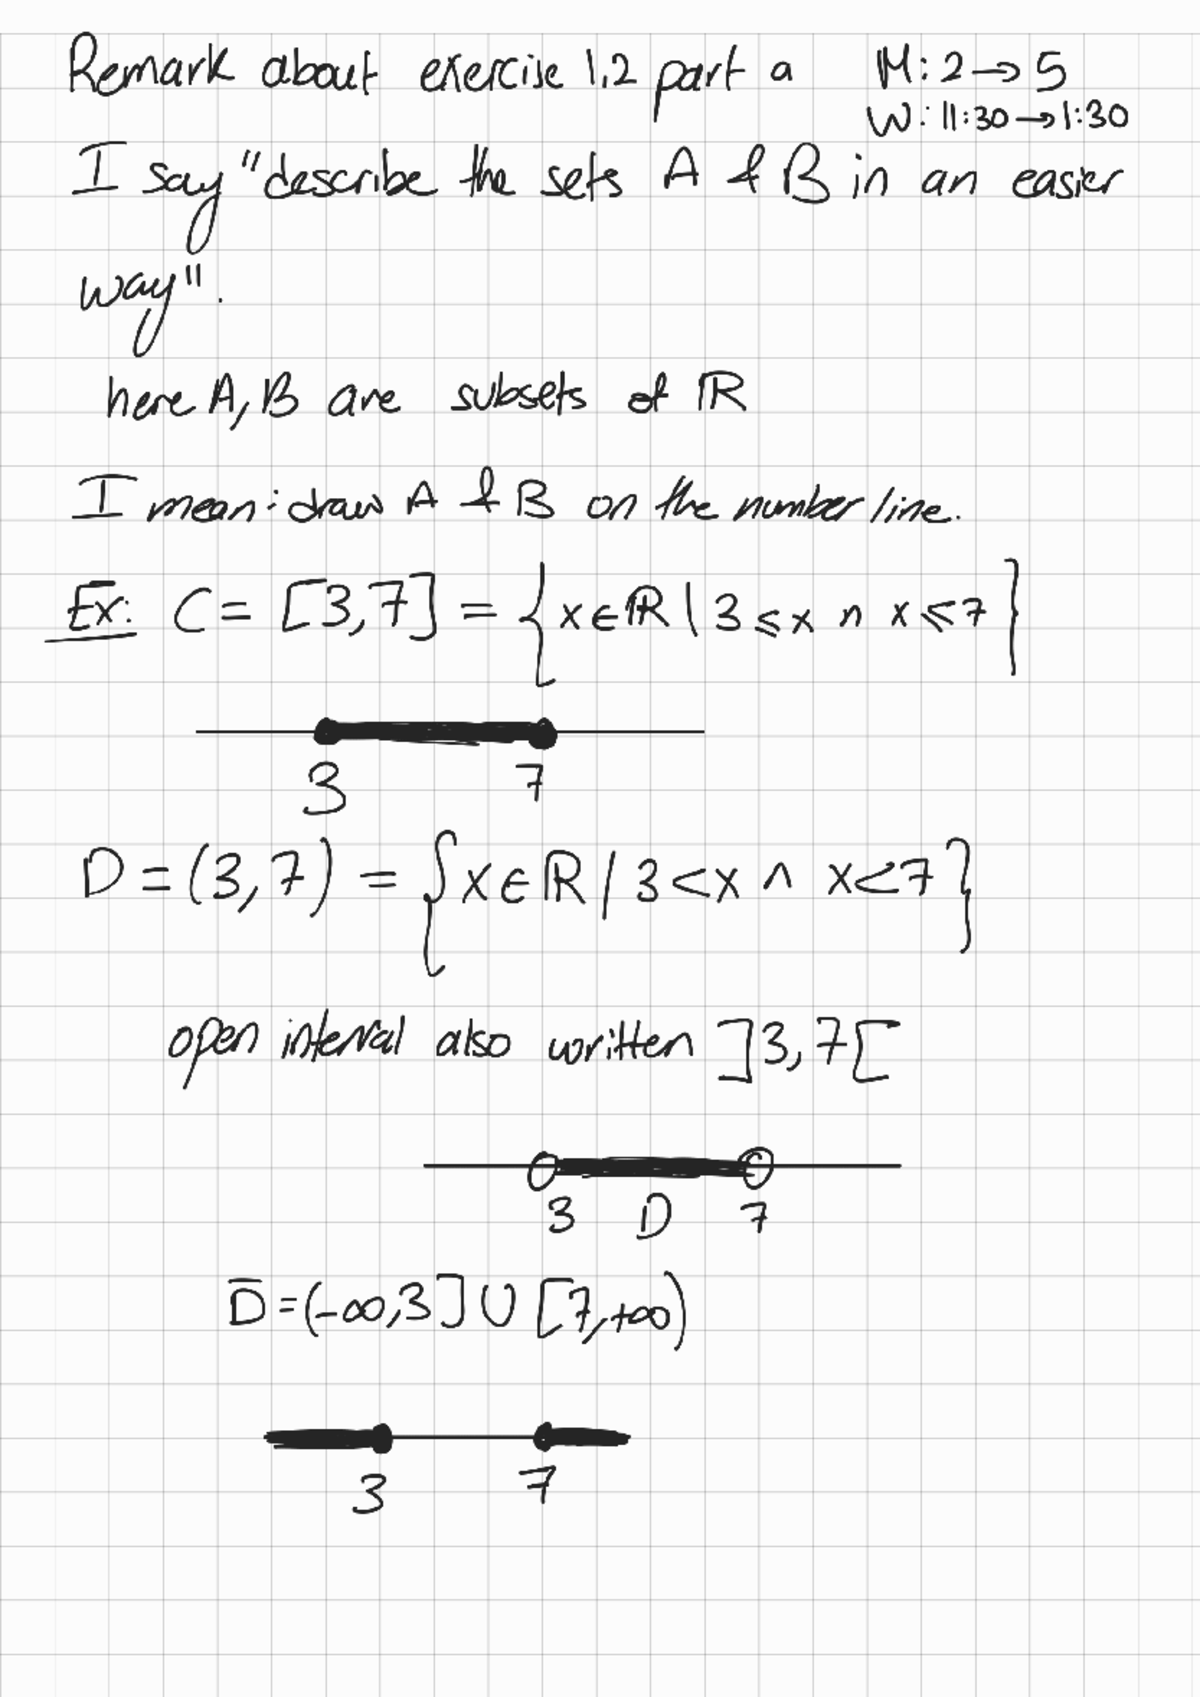 Remark about exercise 1.2 part a M: 2 → 5
W: 11:30 → 1:30
I say "describe the sets A & B in an easier
way".
here A, B are subsets of ℝ
I mean: draw A & B on the number line.
Ex: C = [3,7] = {x ∈ ℝ | 3 ⩽ x ∧ x ⩽ 7}
3 7
D = (3,7) = {x ∈ ℝ / 3 < x ∧ x < 7}
open interval also written ]3,7[
3 D 7
D̅ = (-∞,3] ∪ [7,+∞)
3 7